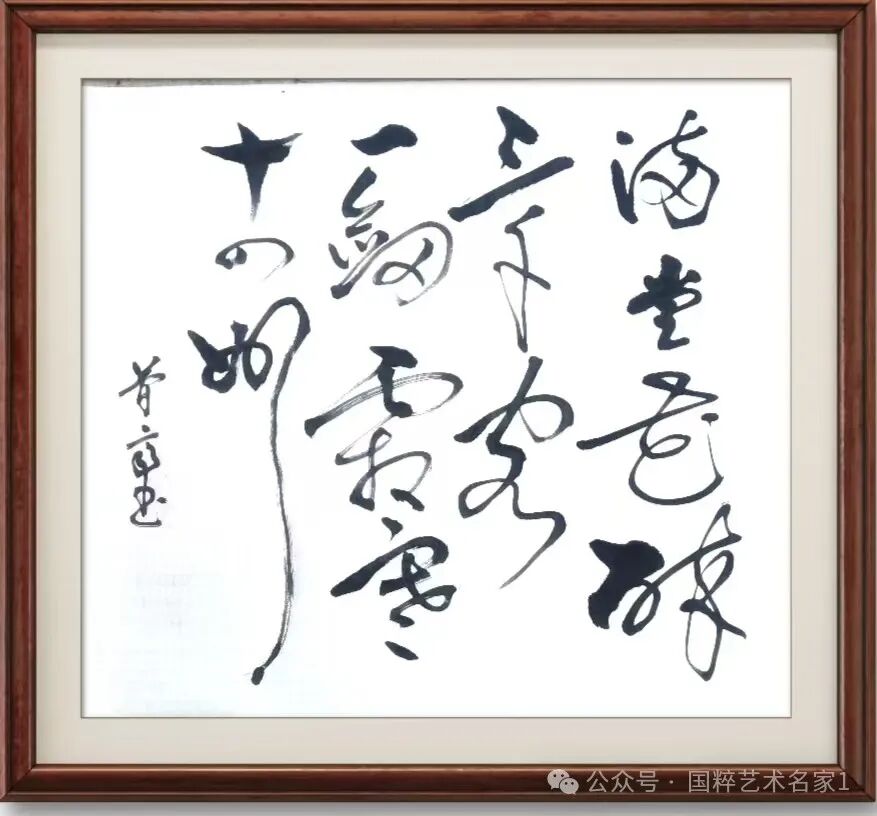 滿堂花醉
三千客
一劍霜寒
十四州
公众号 · 国粹艺术名家1